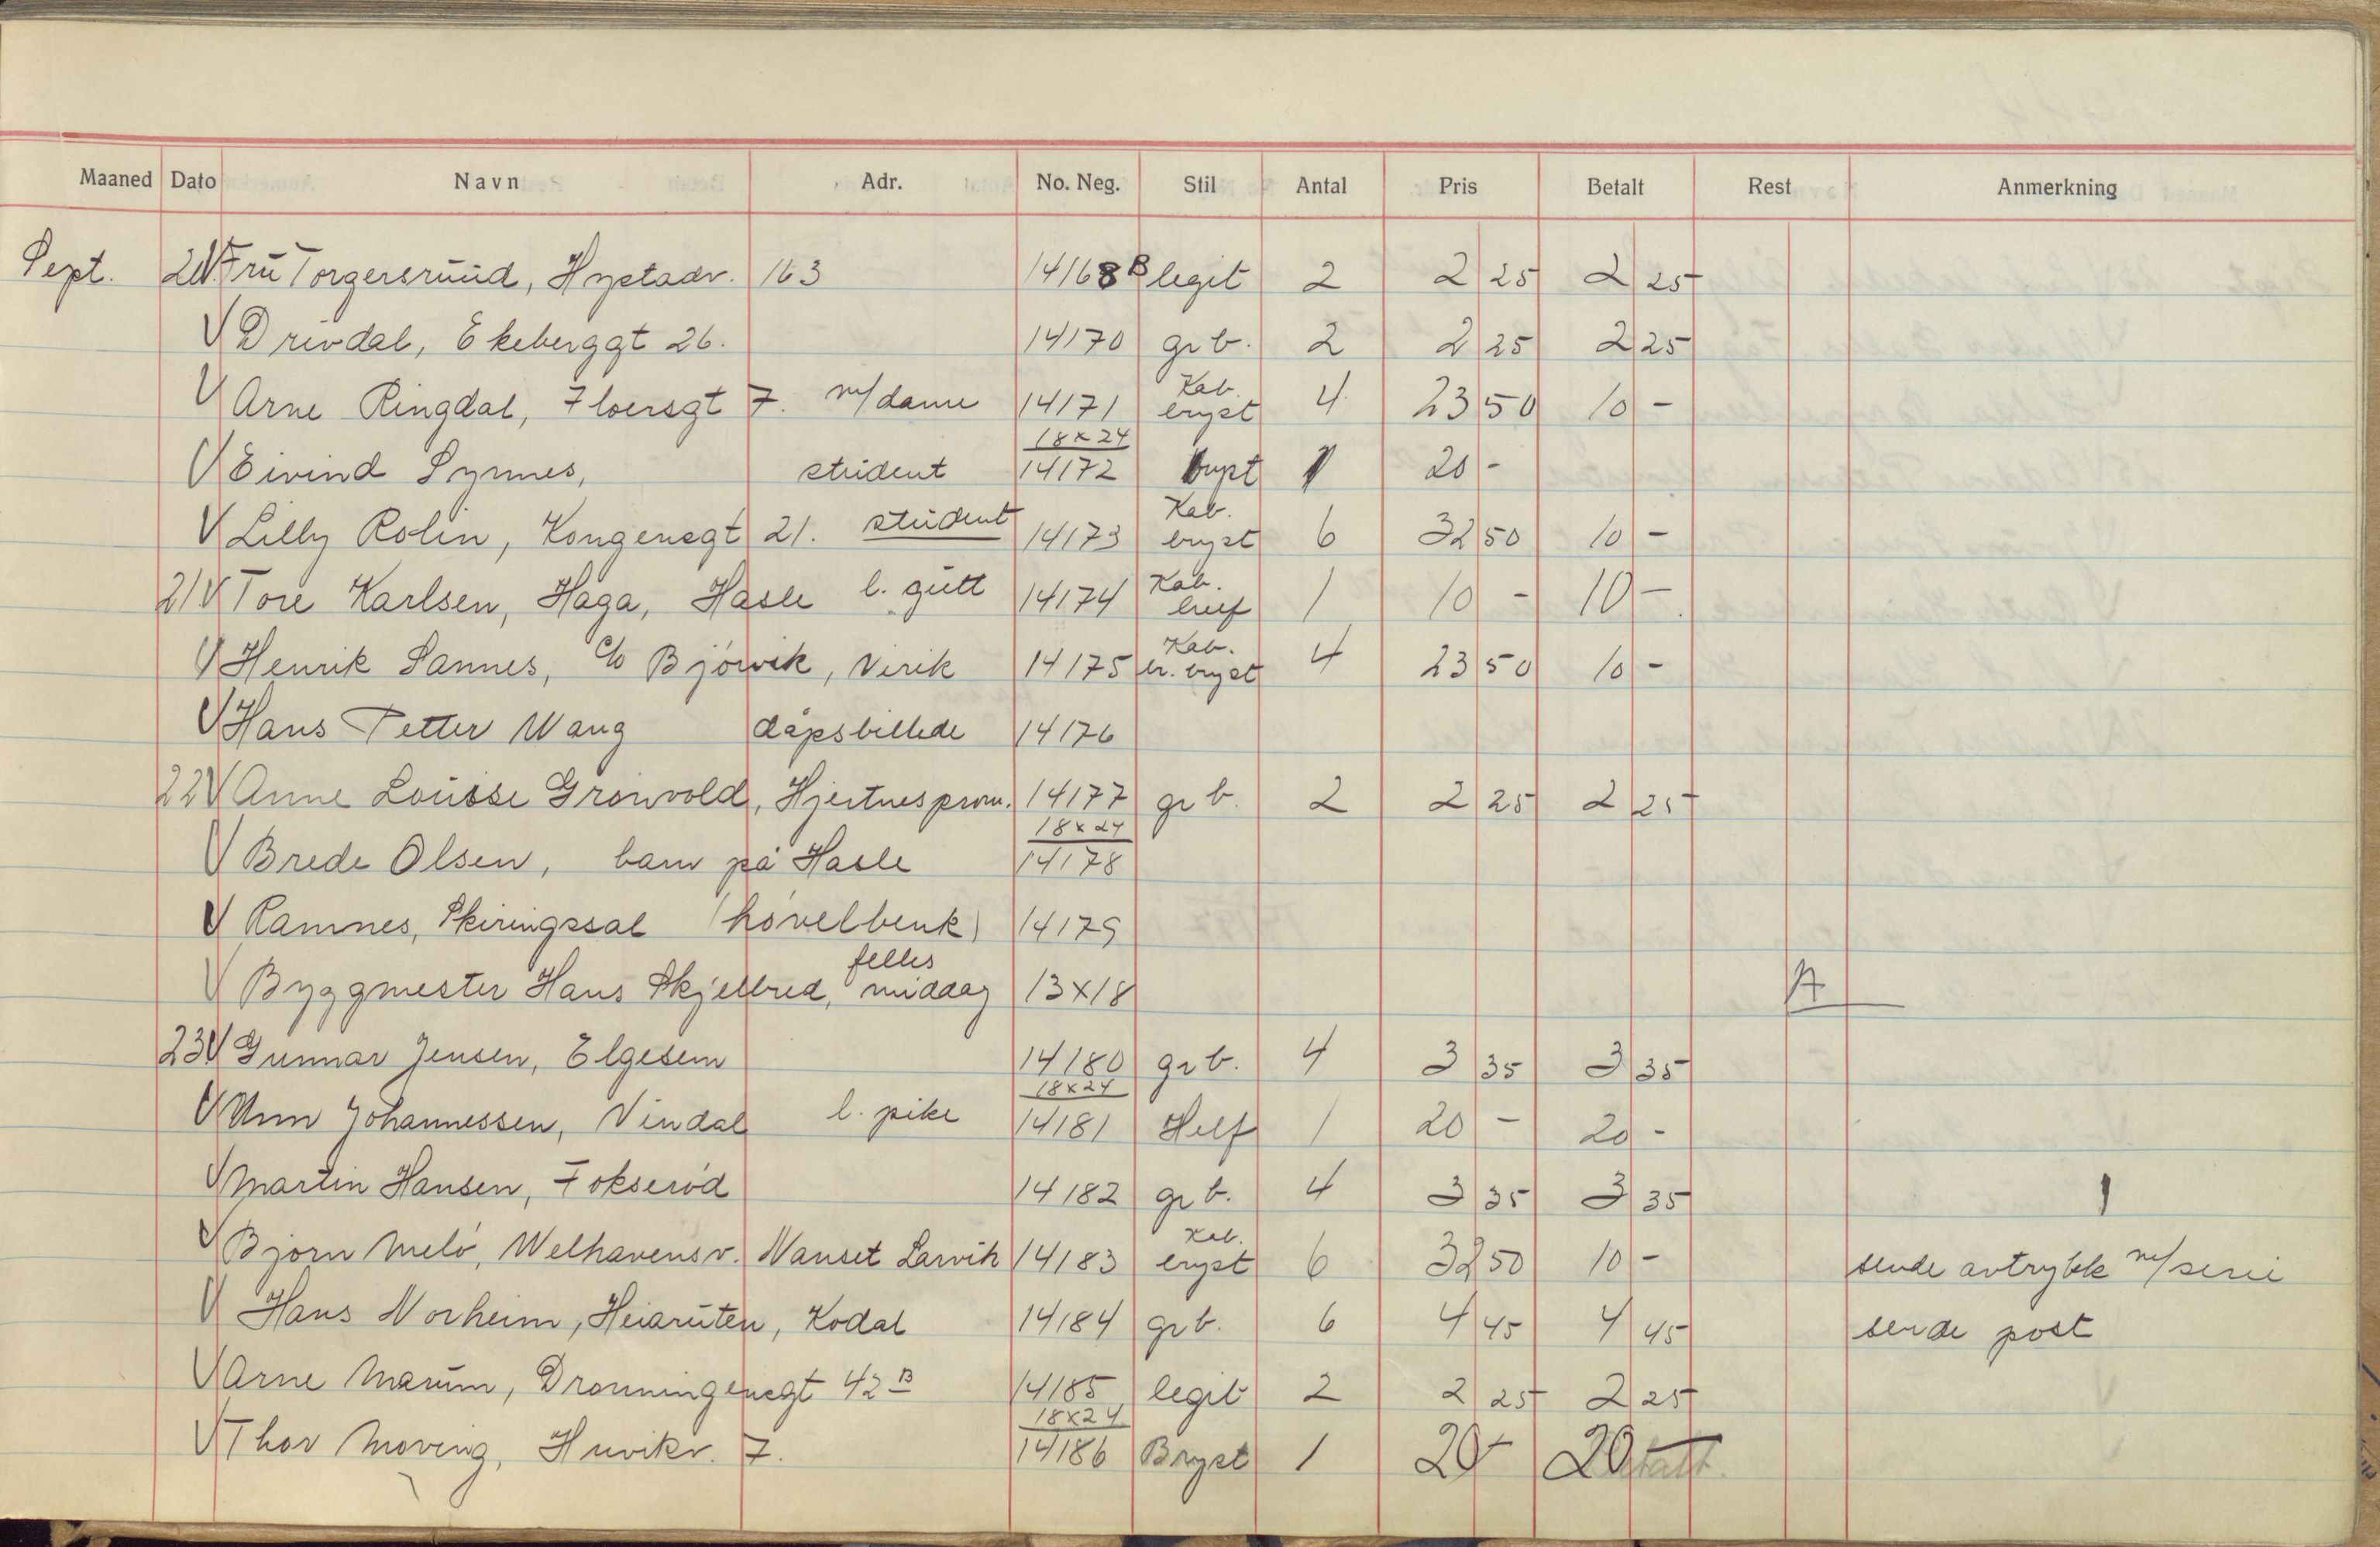 Maaned Dato Navn Adr. No. Neg. Stil Antal Pris Betalt Rest Anmerkning
Sept. 20 V Fru Torgersruud, Hystadv. 163 14168B legit 2 2 25 2 25
V Drivdal, Ekeberggt 26. 14170 gr b. 2 2 25 2 25
V Arne Ringdal, Floersgt 7. m/dame 14171 Kab. bryst 4 23 50 10 -
V Eivind Synnes, student 18x24 14172 bryst 1 20 -
V Lilly Rolin, Kongensgt 21. student 14173 Kab. bryst 6 32 50 10 -
21 V Tore Karlsen, Haga, Hasle l. gutt 14174 Kab. 1 10 - 10 -
V Henrik Sannes, c/o Bjórvik, Virik 14175 Kab. br. bryst 4 23 50 10 -
V Hans Petter Wang dåpsbillede 14176
22 V Anne Louise Grónvold, Hjertnesprom. 14177 gr b. 2 2 25 2 25
V Brede Olsen, barn på Hasle 18x24 14178
V Ramnes, Skiringssal (hóvelbenk) 14179
V Byggmester Hans Skjelbred, felles middag 13x18 A
23 V Gunnar Jensen, Elgesem 14180 gr b. 4 3 35 3 35
V Unn Johannessen, Vindal l. pike 18x24 14181 Helf 1 20 - 20 -
V Martin Hansen, Fokseród 14182 gr b. 4 3 35 3 35
V Bjorn Meló, Welhavensv. Nanset Larvik 14183 Kab. bryst 6 32 50 10 - sende avtrykk m/serie
V Hans Norheim, Heiaruten, Kodal 14184 gr b. 6 4 45 4 45 sende post
V Arne Marum, Dronningensgt 42 B 14185 legit 2 2 25 2 25
V Thor Moving, Huvikv. 7. 18x24 14186 Bryst 1 20 - 20 -